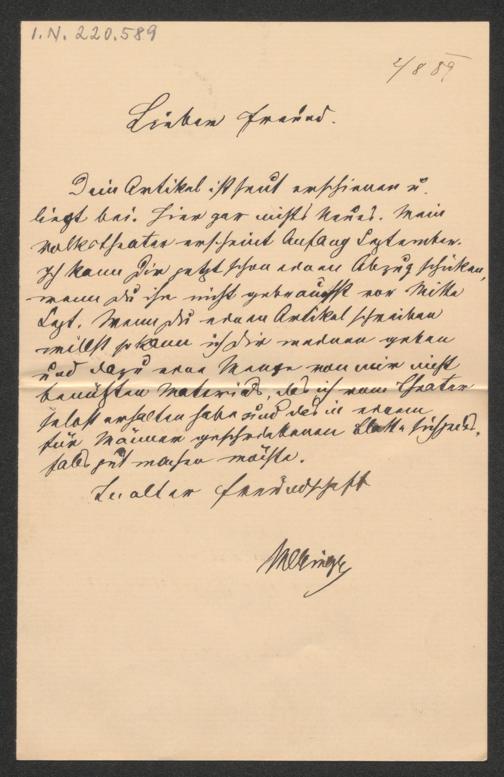 I.N. 220.589
2/8 89
Lieber Freund.
Dein Artikel ist heut erschienen u.
liegt bei. Hier gar nichts Neues. Mein
Volkstheater erscheint Anfang September.
Ich kann Dir jetzt schon einen Abzug schicken,
wenn Du ihn nicht gebrauchst vor Mitte
Sept. Wenn Du einen Artikel schreiben
willst so kann ich Dir meinen geben
und dazu eine Menge von mir nicht
benützten Materials, das ich vom Theater
selbst erhalten habe und das in einem
für Männer geschriebenen Blatte
falls gut machen möchte.
In alter Freundschaft